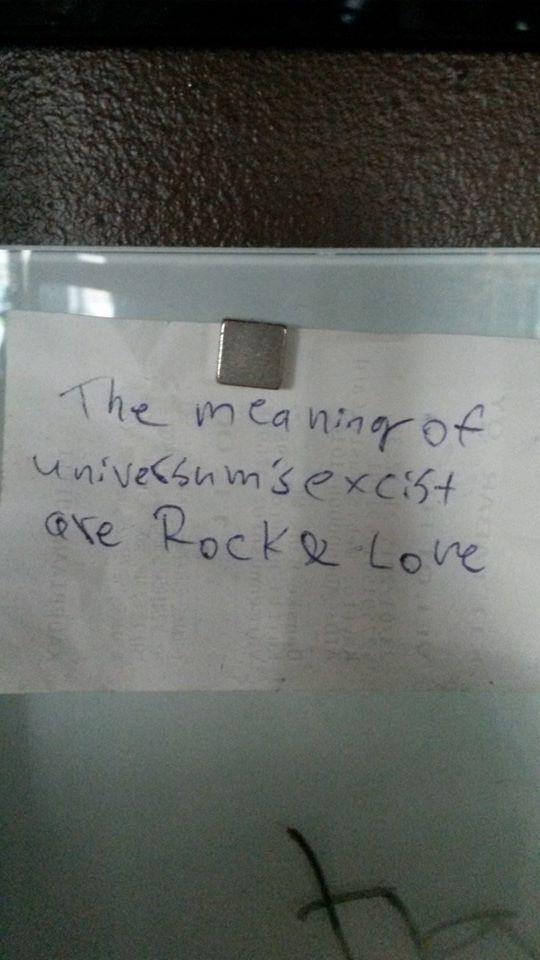 The meaning of
universum's excist
are Rock & Love